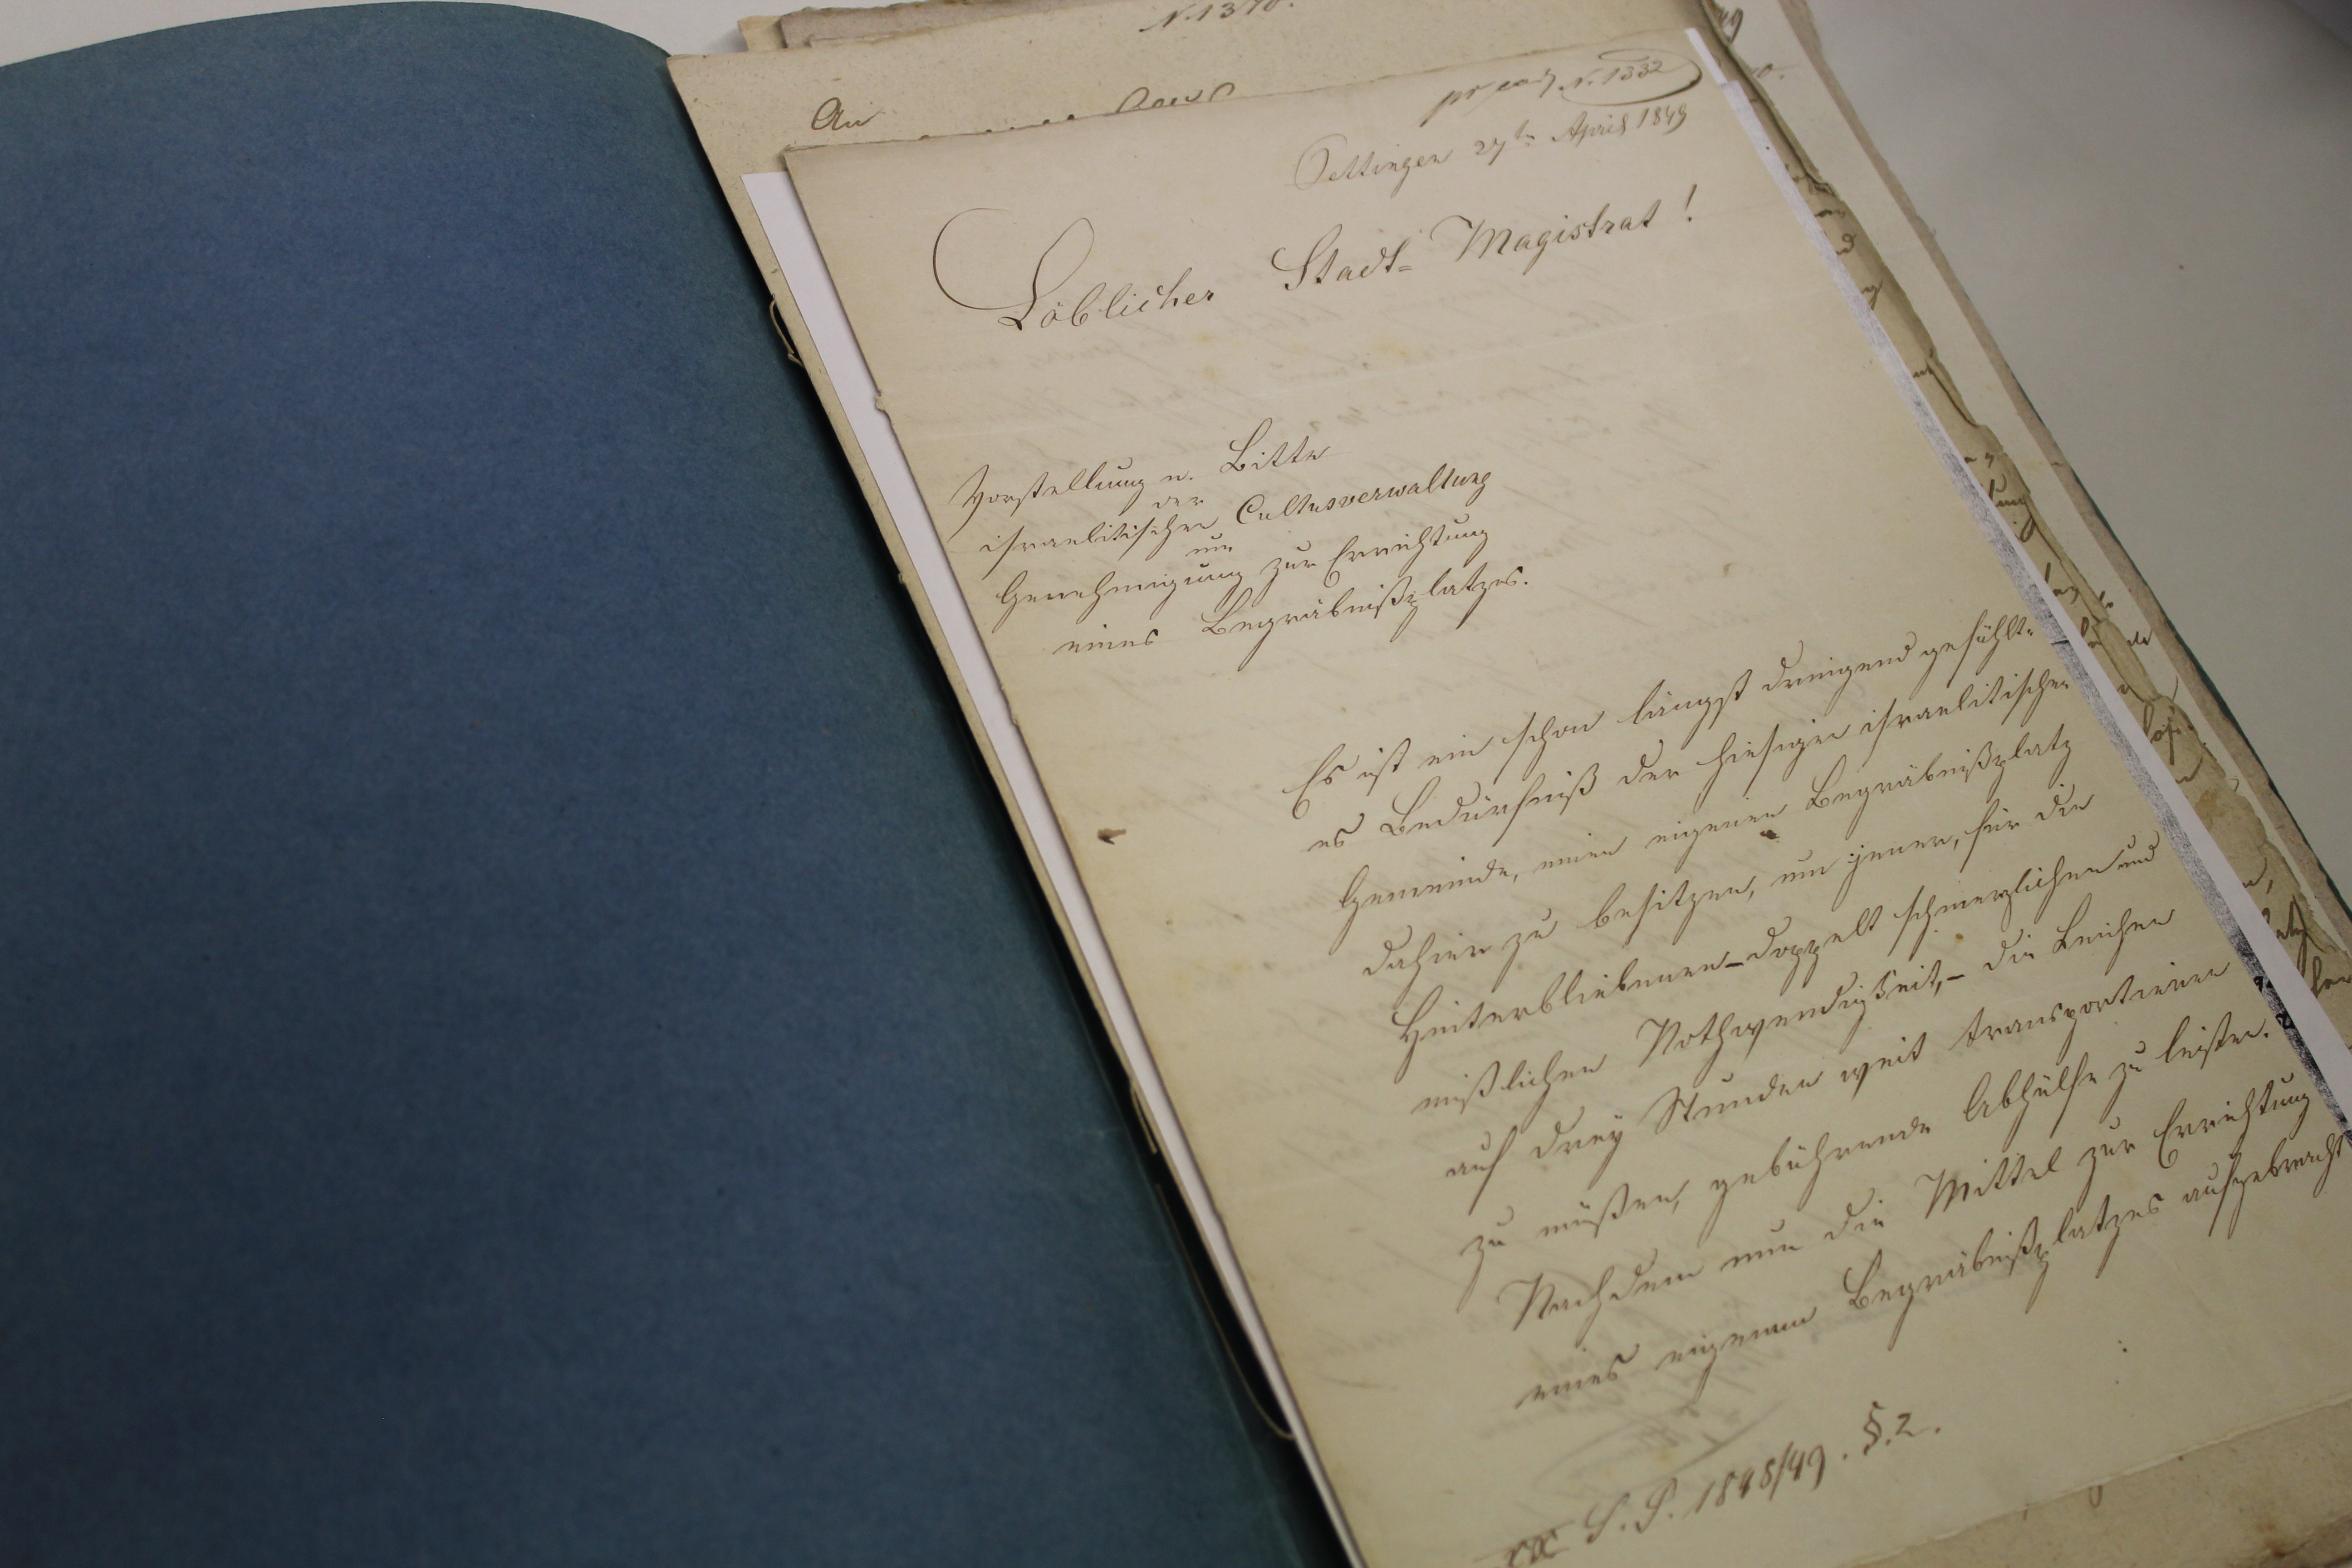 N. 1370.
An
N. 1332
Oettingen 27ten April 1849
Löblicher Stadt- Magistrat!
Vorstellung u. Bitte
der
israelitischen Cultusverwaltung
um
Genehmigung zur Errichtung
eines Begräbnißplatzes.
Es ist ein schon längst dringend gefühlt-
es Bedürfniß der hiesigen israelitischen
Gemeinde, einen eigenen Begräbnißplatz
dahier zu besitzen, um jener, für die
Hinterbliebenen - doppelt schmerzlichen und
mißlichen Nothwendigkeit, - die Leichen
auf drey Stunden weit transportieren
zu müßen, gebührende Abhülfe zu leisten.
Nachdem nun die Mittel zur Errichtung
eines eigenen Begräbnißplatzes aufgebracht
S. P. 1848/49. §. 2.